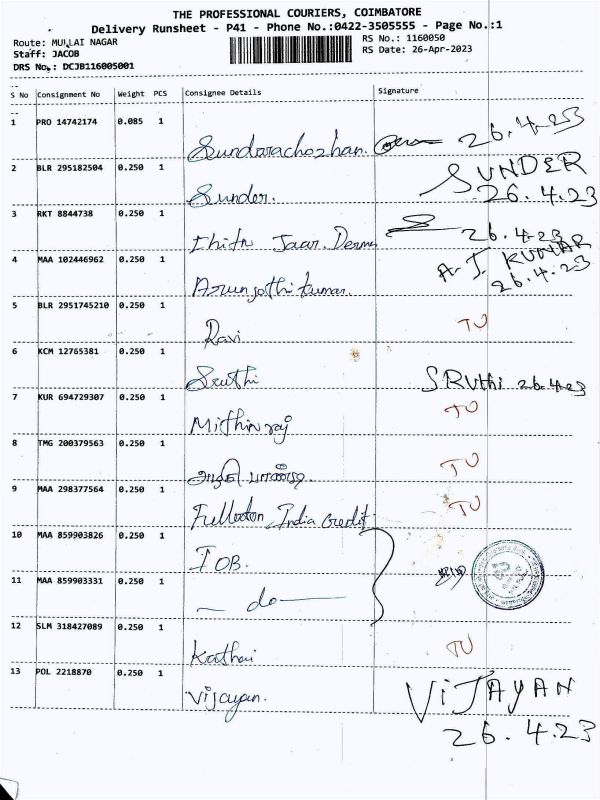 THE PROFESSIONAL COURIERS, COIMBATORE
Delivery Runsheet - P41 - Phone No.:0422-3505555 - Page No.:1
Route: MULLAI NAGAR
RS No.: 1160050
Staff: JACOB
RS Date: 26-Apr-2023
DRS No.: DCJB116005001
S No Consignment No Weight PCS Consignee Details Signature
1 PRO 14742174 0.085 1 Sundarachozhan. 26.4.23
2 BLR 295182504 0.250 1 Sunder. SUNDER
26.4.23
3 RKT 8844738 0.250 1 26.4.23
4 MAA 102446962 0.250 1 Arunjothikumar. A.J. KUMAR
26.4.23
5 BLR 2951745210 0.250 1 Ravi TU
6 KCM 12765381 0.250 1 Sruthi SRUthi 26.4.23
7 KUR 694729307 0.250 1 Mithinraj TU
8 TMG 200379563 0.250 1 TU
9 MAA 298377564 0.250 1 Fullerton India Credit TU
10 MAA 859903826 0.250 1 IOB.
11 MAA 859903331 0.250 1 — do —
12 SLM 318427089 0.250 1 TU
13 POL 2218870 0.250 1 Vijayan. ViJAYAN
26.4.23